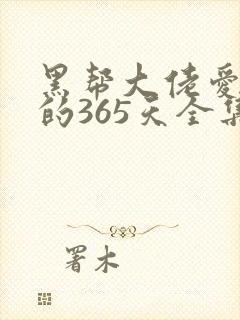 黑帮大佬爱
的365天全集
署木